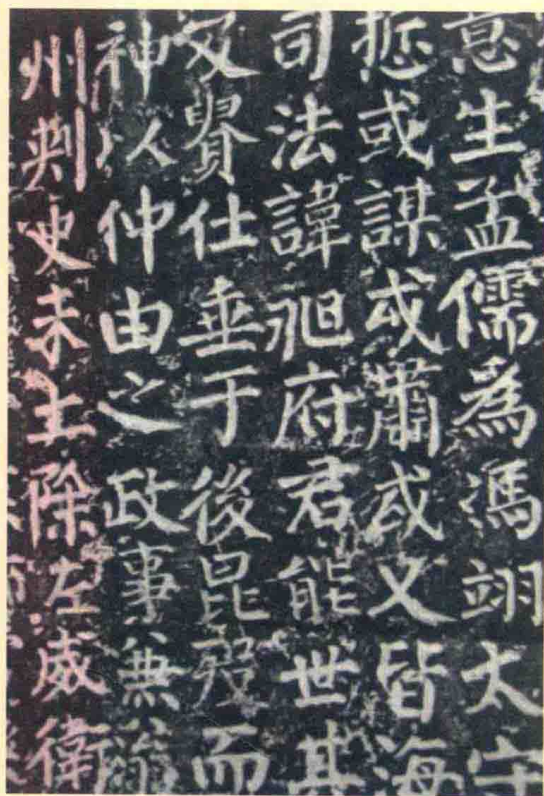 意生孟儒為馮翊太守
悊或謀或肅或乂皆海
司法諱昶府君能世其
賢仕垂于後昆歿而
神以仲由之政事兼翁
州刾史未上除左威衛